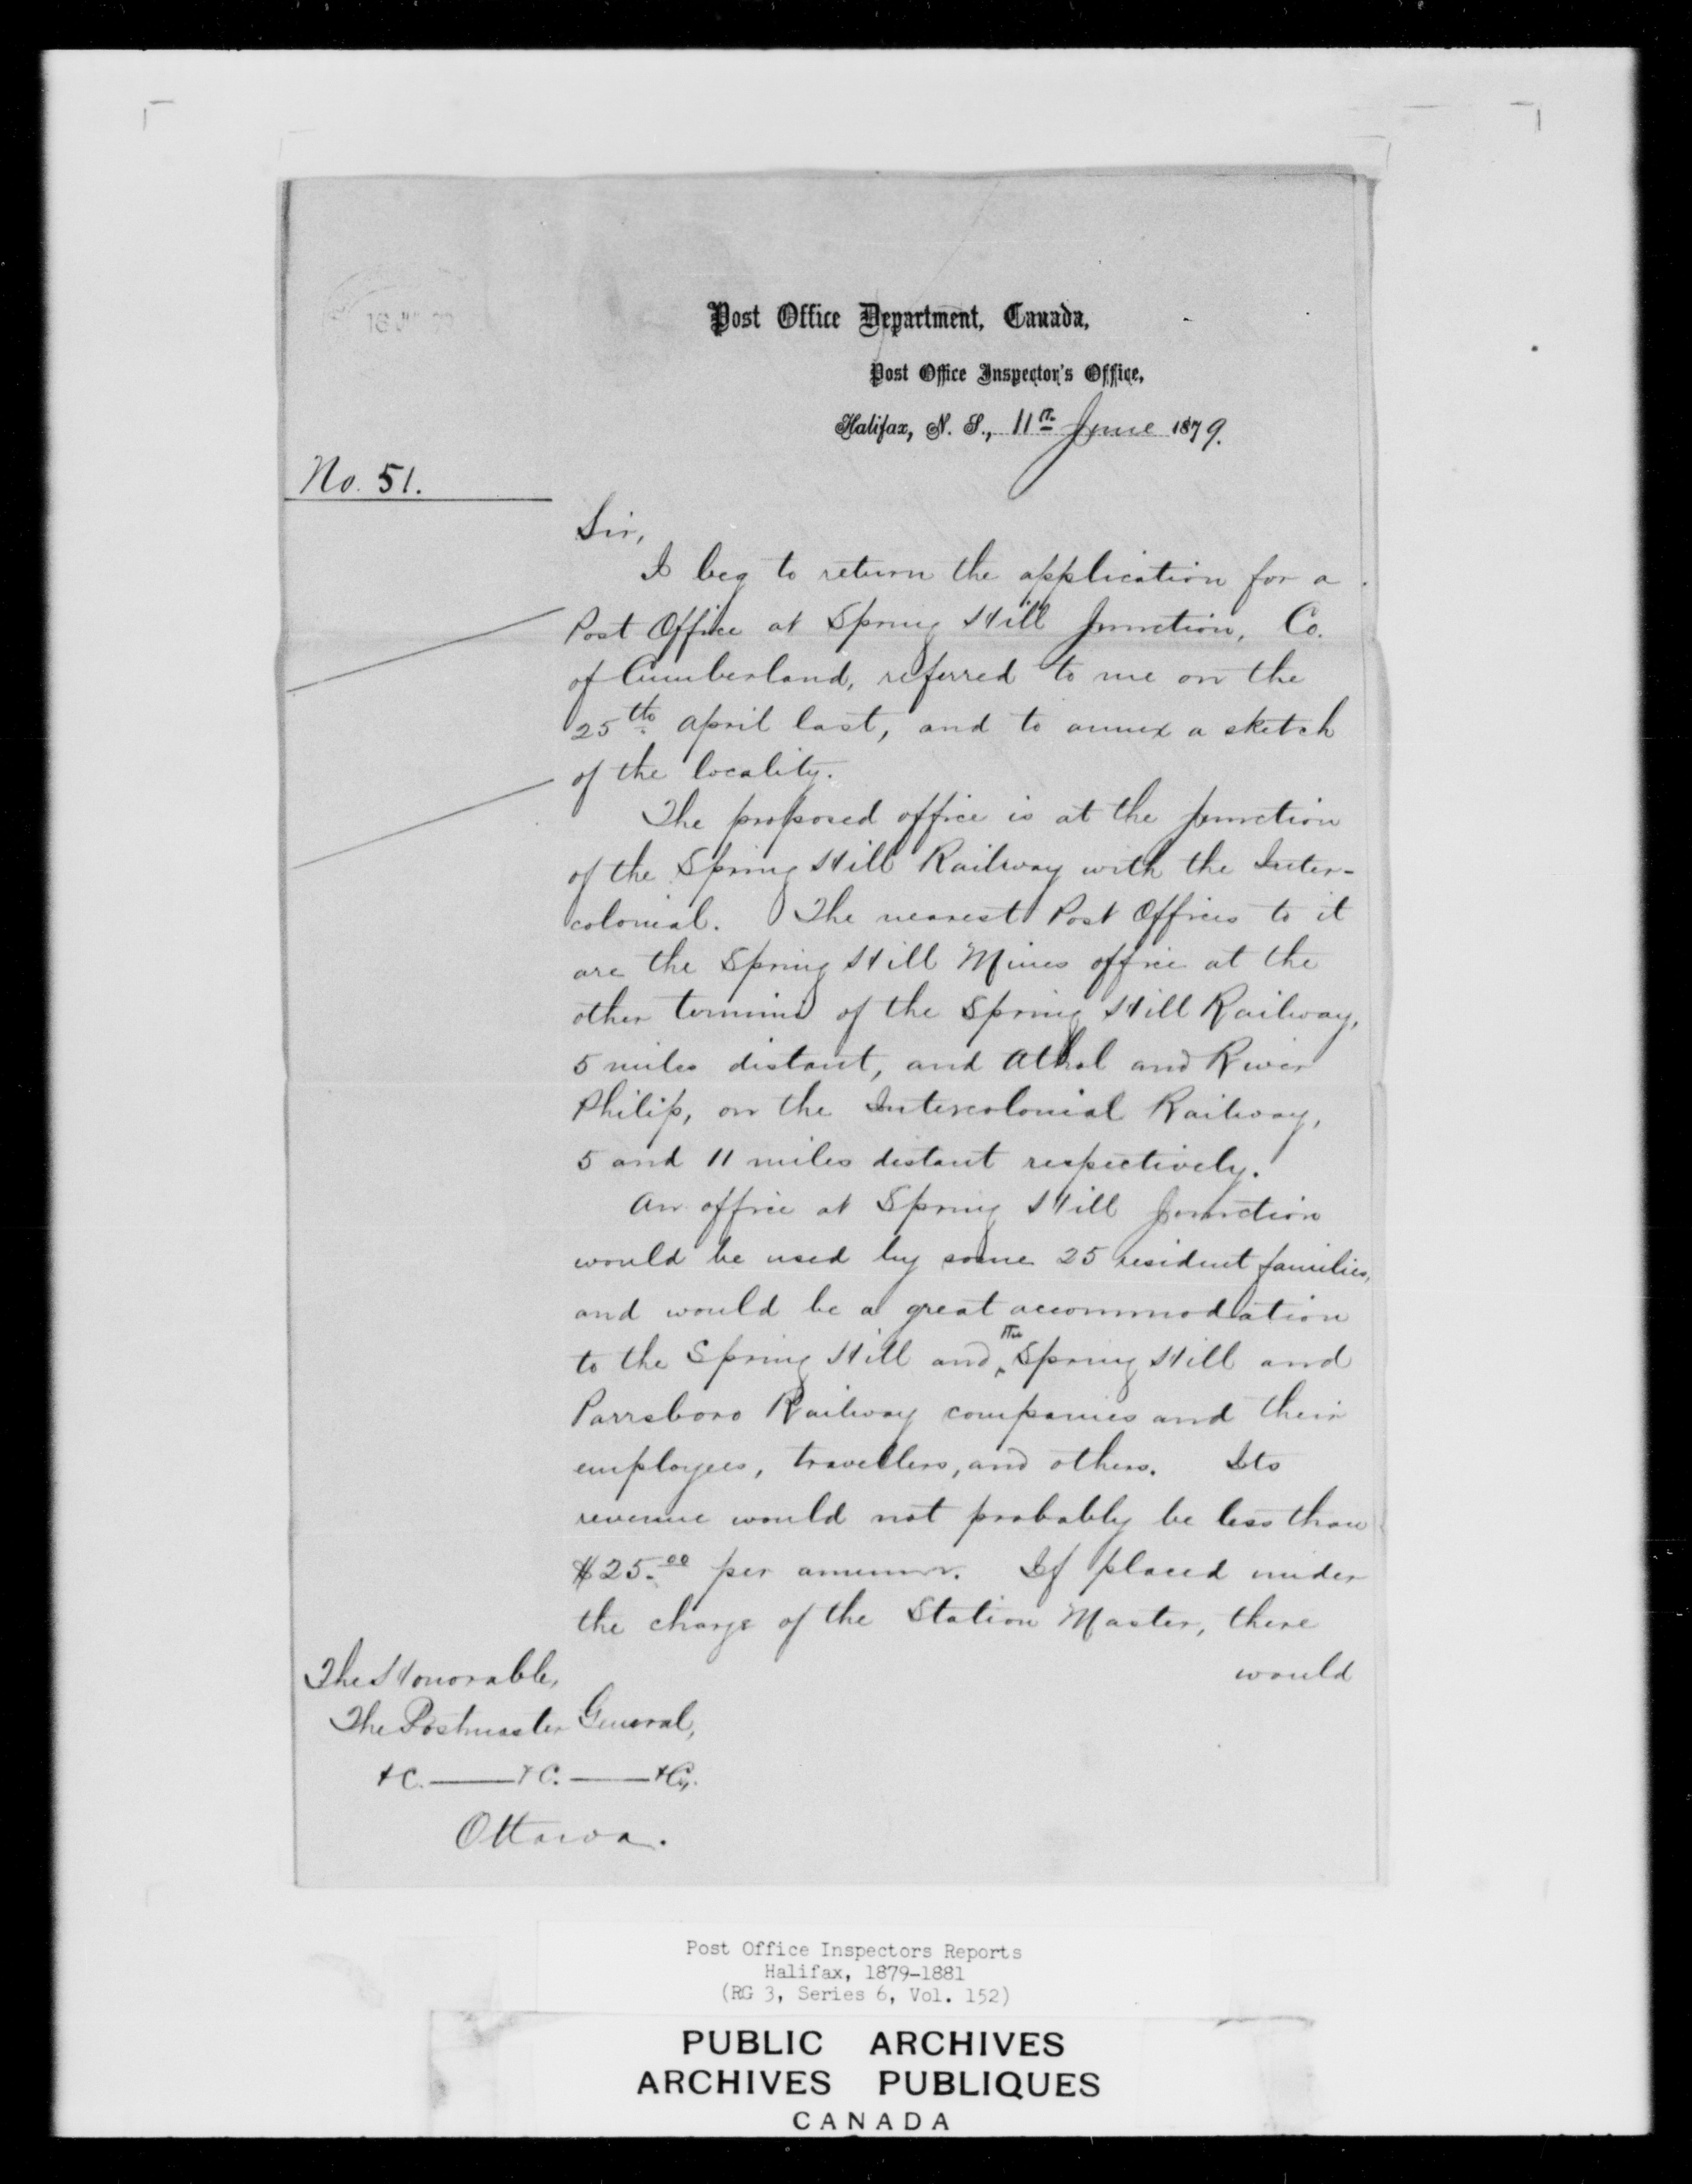 Post Office Department, Canada,
Post Office Inspector's Office,
Halifax, N. S., 11th June 1879.
No. 51.
Sir,
I beg to return the application for a
Post Office at Spring Hill Junction, Co.
of Cumberland, referred to me on the
25th April last, and to annex a sketch
of the locality.
The proposed office is at the junction
of the Spring Hill Railway with the Inter-
colonial. The nearest Post Offices to it
are the Spring Hill Mines office at the
other termini of the Spring Hill Railway,
5 miles distant, and Athol and River
Philip, on the Intercolonial Railway,
5 and 11 miles distant respectively.
An office at Spring Hill Junction
would be used by some 25 resident families,
and would be a great accommodation
to the Spring Hill and the Spring Hill and
Parrsboro Railway companies and their
employees, travellers, and others. Its
revenue would not probably be less than
$25.00 per annum. If placed under
the charge of the Station Master, there
would
The Honorable,
The Postmaster General,
&c. — &c. — &c.
Ottawa.
Post Office Inspectors Reports
Halifax, 1879-1881
(RG 3, Series 6, Vol. 152)
PUBLIC ARCHIVES
ARCHIVES PUBLIQUES
CANADA